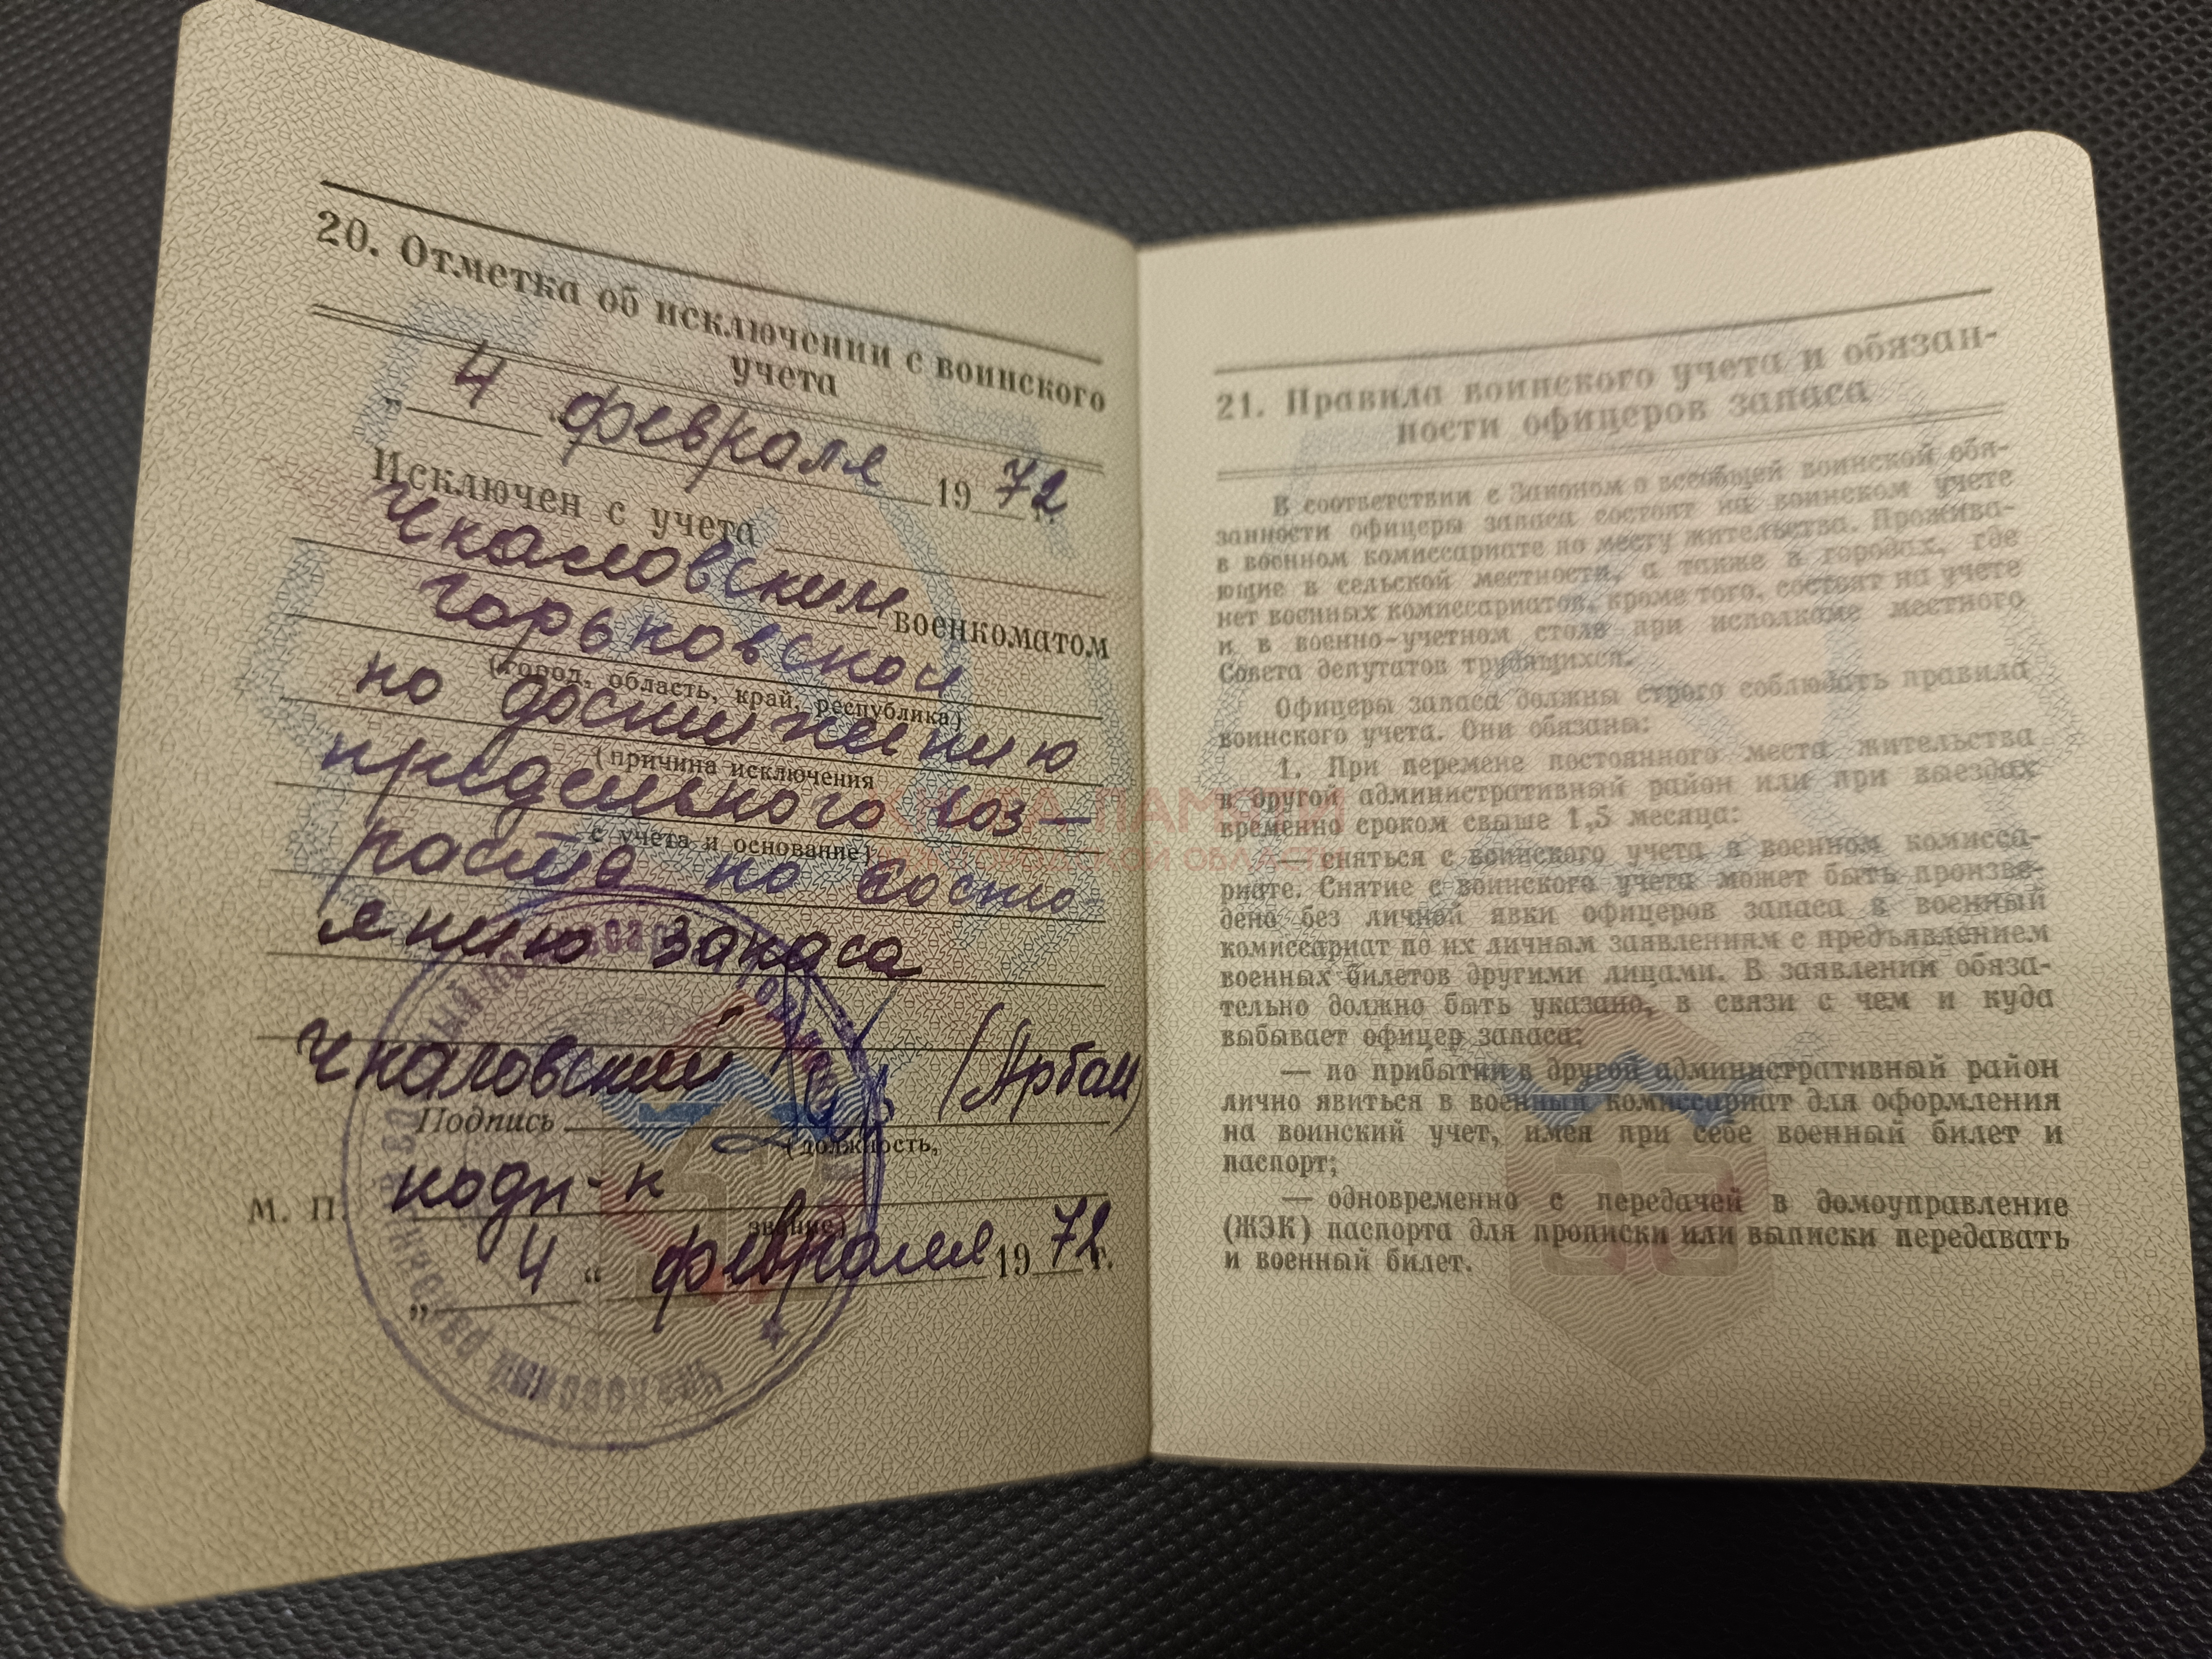 20. Отметка об исключении с воинского
учета
„ 4 “ февраля 19 72 г.
Исключен с учета
Чкаловским военкоматом
Горьковской
(город, область, край, республика)
по достижению
(причина исключения
предельного воз-
с учета и основание)
раста по состо-
янию запаса
Чкаловский (Артам
Подпись
(должность,
подп-к
звание)
М. П.
„ 4 “ февраля 19 72 г.
21. Правила воинского учета и обязан-
ности офицеров запаса
В соответствии с Законом о всеобщей воинской обя-
занности офицеры запаса состоят на воинском учете
в военном комиссариате по месту жительства. Прожива-
ющие в сельской местности, а также в городах, где
нет военных комиссариатов, кроме того, состоят на учете
и в военно-учетном столе при исполкоме местного
Совета депутатов трудящихся.
Офицеры запаса должны строго соблюдать правила
воинского учета. Они обязаны:
1. При перемене постоянного места жительства
в другой административный район или при выездах
временно сроком свыше 1,5 месяца:
— сняться с воинского учета в военном комисса-
риате. Снятие с воинского учета может быть произве-
дено без личной явки офицеров запаса в военный
комиссариат по их личным заявлениям с предъявлением
военных билетов другими лицами. В заявлении обяза-
тельно должно быть указано, в связи с чем и куда
выбывает офицер запаса;
— по прибытии в другой административный район
лично явиться в военный комиссариат для оформления
на воинский учет, имея при себе военный билет и
паспорт;
— одновременно с передачей в домоуправление
(ЖЭК) паспорта для прописки или выписки передавать
и военный билет.
КНИГА ПАМЯТИ
ОБЛАСТИ